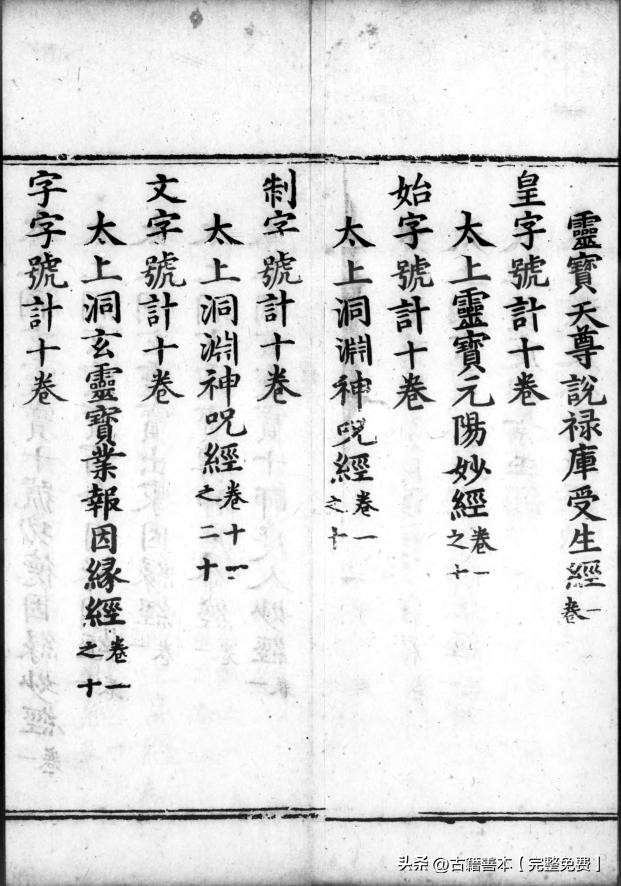 靈寶天尊說祿庫受生經一卷
皇字號計十卷
太上靈寶元陽妙經卷一之十
始字號計十卷
太上洞淵神呪經卷一之十
制字號計十卷
太上洞淵神呪經卷十一之二十
文字號計十卷
太上洞玄靈寶業報因緣經卷一之十
字字號計十卷
头条 @古籍善本【完整免费】